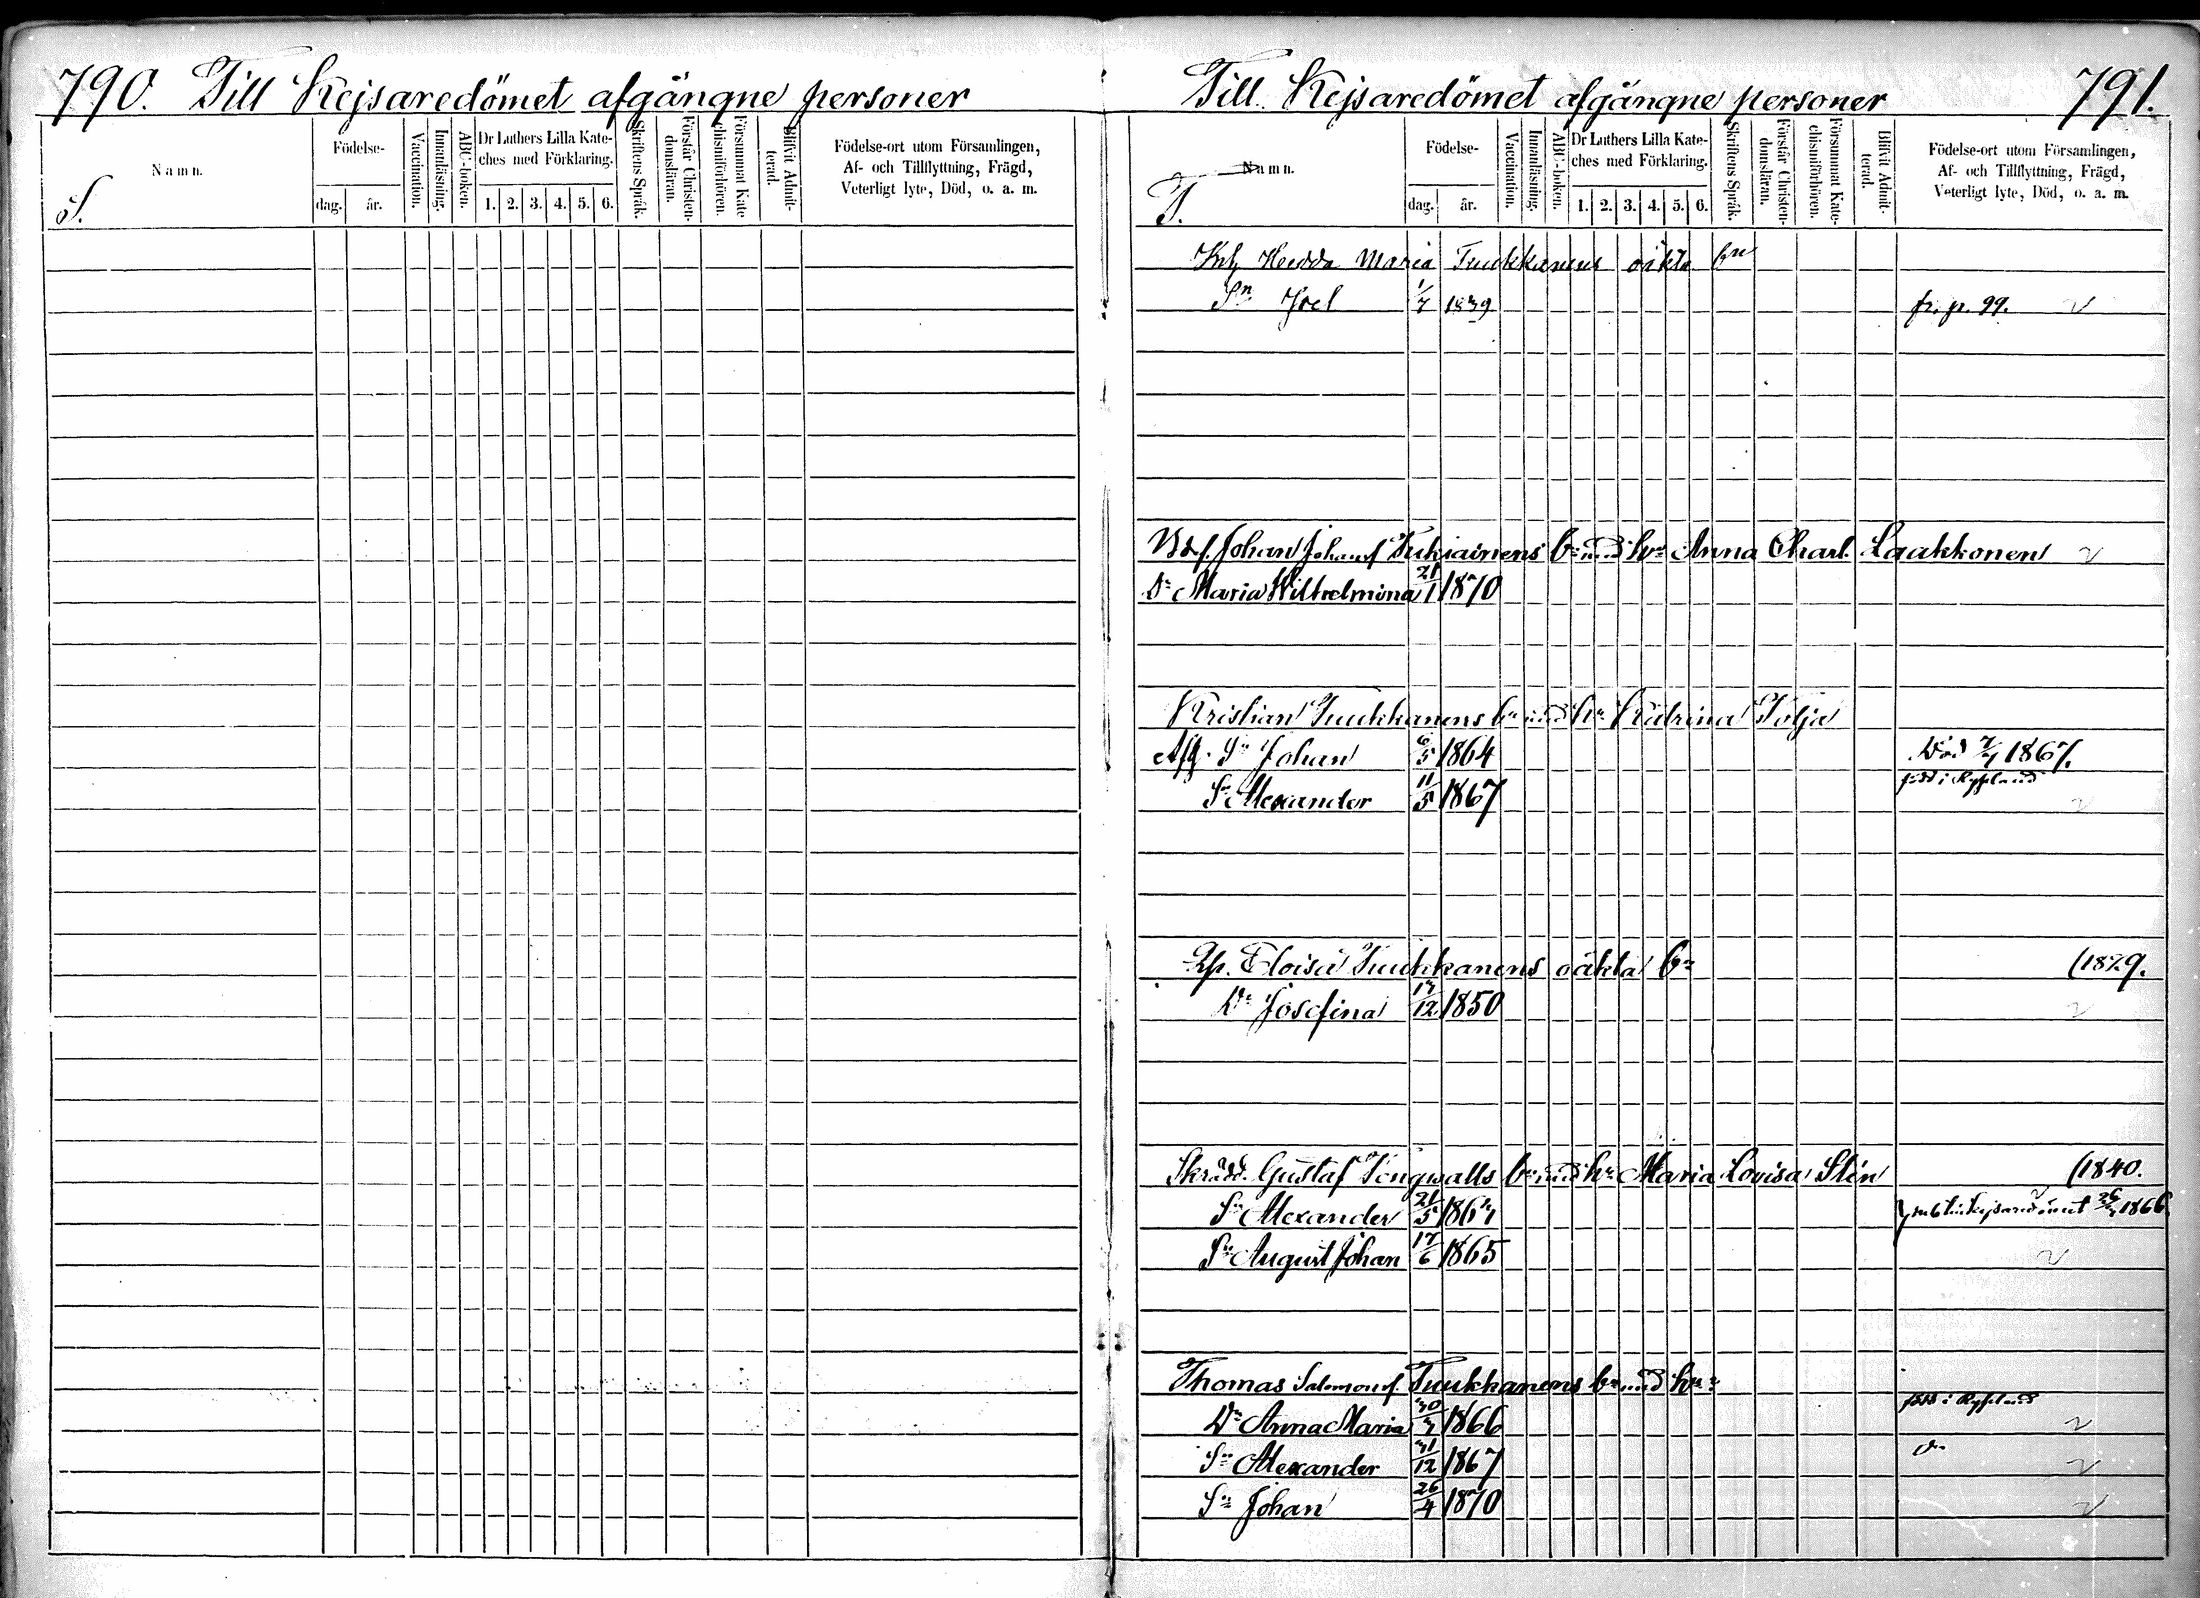 790. Till Kejsaredömet afgångne personer
Namn.
Födelse-
dag.
år.
Vaccination.
Innanläsning.
ABC-boken.
Dr Luthers Lilla Kate-
ches med Förklaring.
1. 2. 3. 4. 5. 6.
Skriftens Språk.
Förstår Christen-
domsläran.
Försummat Kate-
chismiförhören.
Blifvit Admit-
terad.
Födelse-ort utom Församlingen,
Af- och Tillflyttning, Frägd,
Veterligt lyte, Död, o. a. m.
S.
Till Kejsaredömet afgångne personer 791.
Namn.
Födelse-
dag.
år.
Vaccination.
Innanläsning.
ABC-boken.
Dr Luthers Lilla Kate-
ches med Förklaring.
1. 2. 3. 4. 5. 6.
Skriftens Språk.
Förstår Christen-
domsläran.
Försummat Kate-
chismiförhören.
Blifvit Admit-
terad.
Födelse-ort utom Församlingen,
Af- och Tillflyttning, Frägd,
Veterligt lyte, Död, o. a. m.
T.
Hedda Maria Tuukkanens oäkta bn
Sn Joel 1/7 1839 fr. p. 99.
Johan Johansf Tukiainens bn med hu Anna Charl. Laakkonen
Dr Maria Wilhelmina 21/1 1870
Kristian Tuukkanens bn med hu Katrina Tolja
Afg. Sn Johan 6/5 1864 Död 1867.
Sn Alexander 11/5 1867 född i Ryssland
Eloisa Tuukkanens oäkta bn (1829.
Dr Josefina 12 1850
Skrädd. Gustaf Tengwalls bn med hu Maria Lovisa Stén (1840.
Sn Alexander 21/5 1866
Sn August Johan 17/6 1865
Thomas Salomonsf. Tuukkanens bn med hu
Dr Anna Maria 1866 född i Ryssland
Sn Alexander 31/12 1867
Sn Johan 26/4 1870